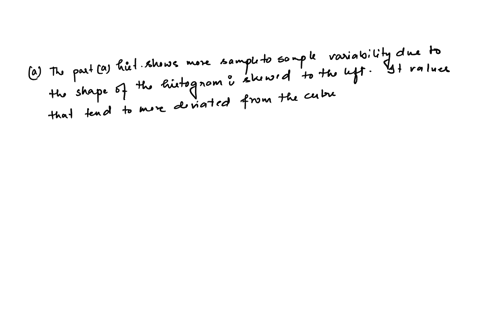 (a) The part (a) hist. shows more sample to sample variability due to
the shape of the histogram is skewed to the left. It values
that tend to more deviated from the